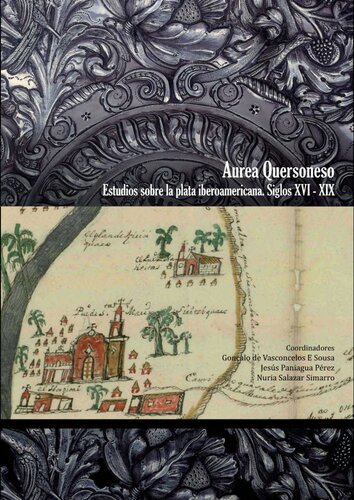 Aurea Quersoneso
Estudios sobre la plata iberoamericana. Siglos XVI - XIX
Coordinadores
Gonçalo de Vasconcelos E Sousa
Jesús Paniagua Pérez
Nuria Salazar Simarro